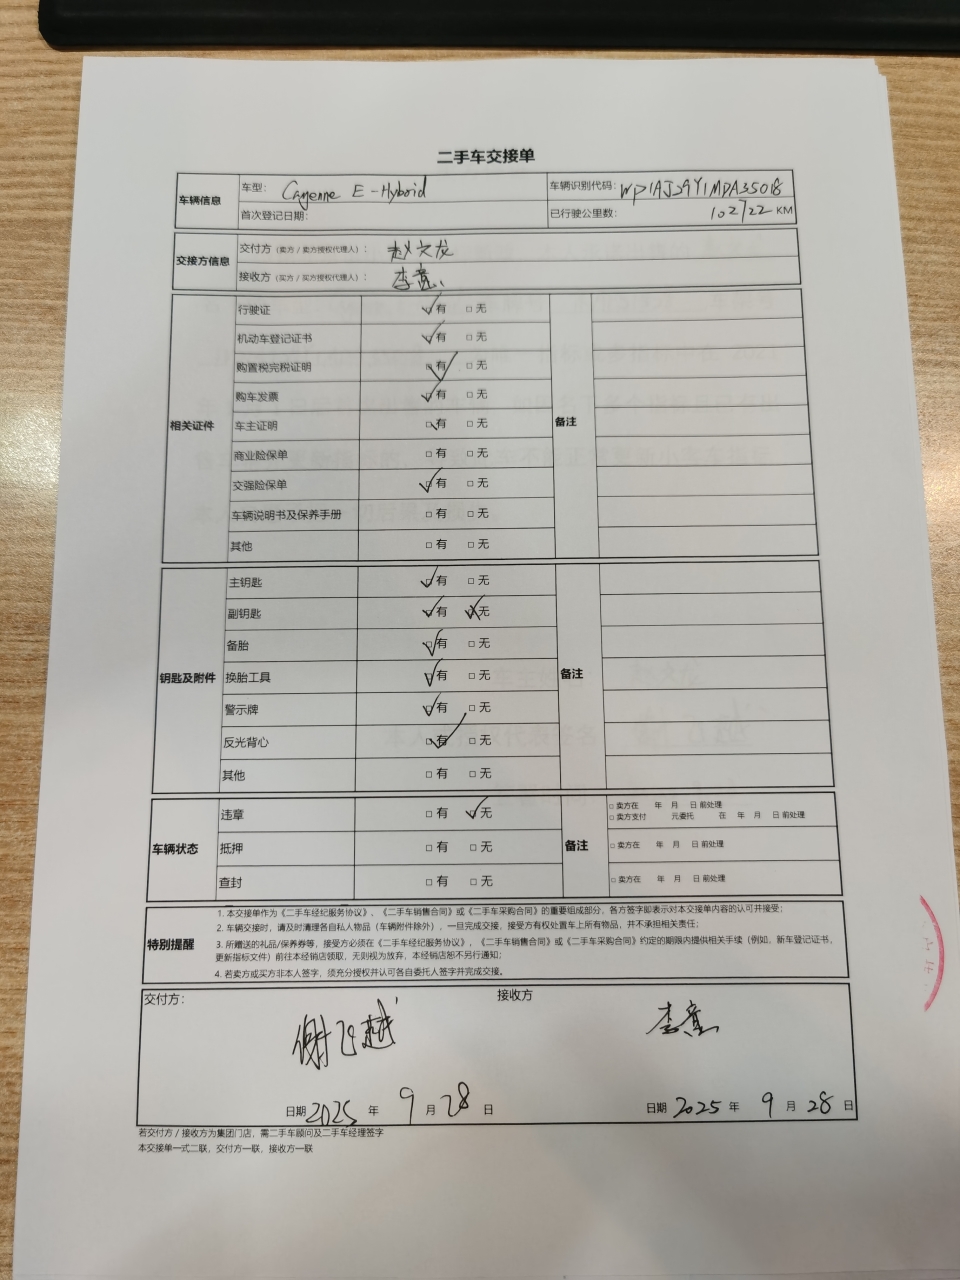 二手车交接单
车辆信息 车型: Cayenne E-Hybrid 车辆识别代码: WP1AJ29Y1MDA35018
首次登记日期: 已行驶公里数: 102722 KM
交接方信息 交付方（卖方/卖方授权代理人）: 赵文龙
接收方（买方/买方授权代理人）: 李意
相关证件 备注
行驶证 ☑有 □无
机动车登记证书 ☑有 □无
购置税完税证明 ☑有 □无
购车发票 ☑有 □无
车主证明 ☑有 □无
商业险保单 □有 □无
交强险保单 ☑有 □无
车辆说明书及保养手册 □有 □无
其他 □有 □无
钥匙及附件 备注
主钥匙 ☑有 □无
副钥匙 ☑有 ☒无
备胎 ☑有 □无
换胎工具 ☑有 □无
警示牌 ☑有 □无
反光背心 ☑有 □无
其他 □有 □无
车辆状态 备注
违章 □有 ☑无 □卖方在 年 月 日前处理
□卖方支付 元委托 在 年 月 日前处理
抵押 □有 □无 □卖方在 年 月 日前处理
查封 □有 □无 □卖方在 年 月 日前处理
特别提醒
1. 本交接单作为《二手车经纪服务协议》、《二手车销售合同》或《二手车采购合同》的重要组成部分，各方签字即表示对本交接单内容的认可并接受；
2. 车辆交接时，请及时清理各自私人物品（车辆附件除外），一旦完成交接，接受方有权处置车上所有物品，并不承担相关责任；
3. 所赠送的礼品/保养券等，接受方必须在《二手车经纪服务协议》、《二手车销售合同》或《二手车采购合同》约定的期限内提供相关手续（例如，新车登记证书，
更新指标文件）前往本经销店领取，无则视为放弃，本经销店恕不另行通知；
4. 若卖方或买方非本人签字，须充分授权并认可各自委托人签字并完成交接。
交付方: 接收方
谢飞越 李意
日期 2025 年 9 月 28 日 日期 2025 年 9 月 28 日
若交付方/接收方为集团门店，需二手车顾问及二手车经理签字
本交接单一式二联，交付方一联，接收方一联